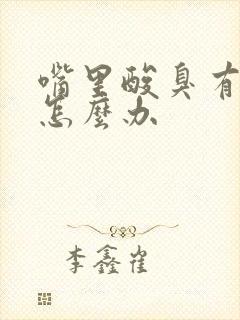 嘴里酸臭有
怎麼办
李鑫崔